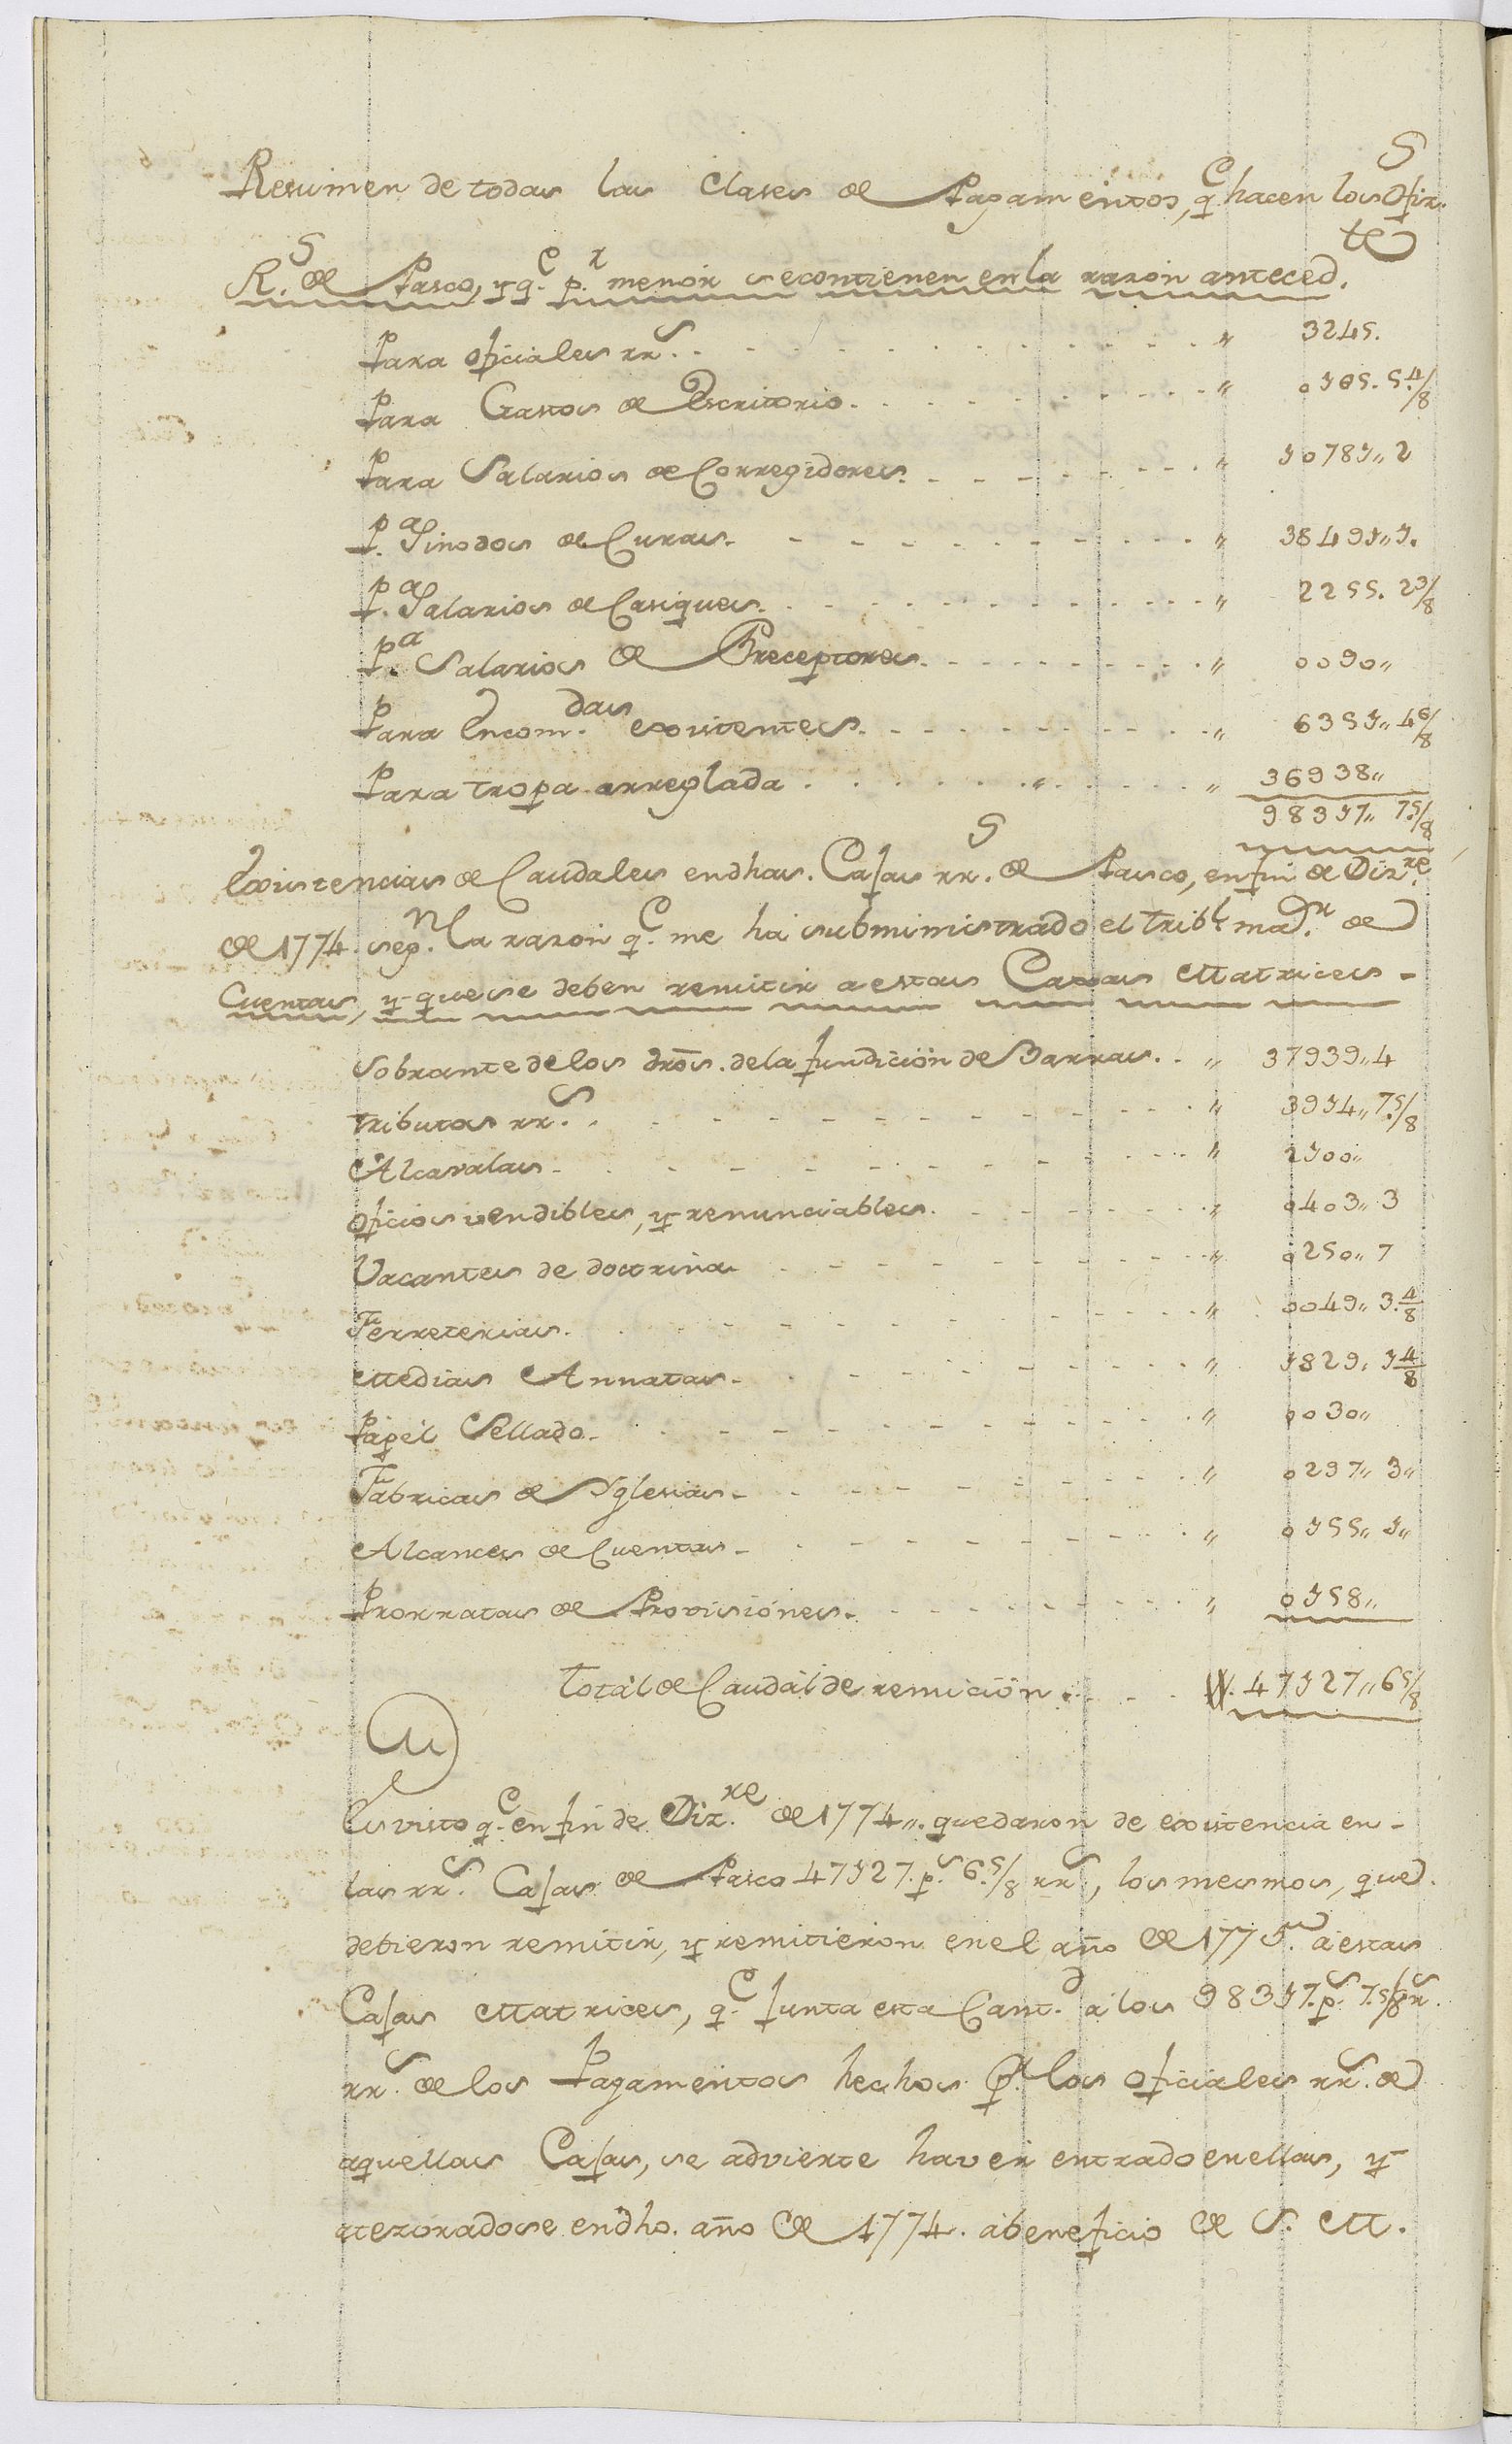 Resumen de todas las clases de Pagamentos, q.e hacen los Ofiz.s
R.s de Pasco, y q.e p.r menor se contienen en la razon anteced.te
Para oficiales rr.s . . . . . . . . . . . . " 3245.
Para Gastos de Escritorio . . . . . . . . . " 0165. 5.4/8
Para Salarios de Corregidores . . . . . . " 10781,, 2
P.a Sinodos de Curas . . . . . . . . . . " 38491,, 1.
P.a Salarios de Casiques . . . . . . . . . " 2255. 2 3/8
P.a Salarios de Preceptores . . . . . . . . " 0090,,
Para Encom.das existentes . . . . . . . . " 6351,, 4 6/8
Para tropa arreglada . . . . . . " . . . . " 36938,,
98317,, 7 5/8
Existencias de Caudales en dhas. Cajas rr.s de Pasco, en fin de Diz.re
de 1774. seg.n la razon q.e me ha subministrado el tribl. ma.r de
Cuentas, y que se deben remitir a estas Caxas Matrices -
Sobrante de los dros. de la fundicion de Barras . . " 37939,, 4
tributos rr.s . . . . . . . . . . . . " 3914,, 7 5/8
Alcavalas . . . . . . . . . . . . " 2100,,
oficios vendibles, y renunciables . . . . . . " 0403,, 3
Vacantes de doctrina . . . . . . . . . " 0250,, 7
Ferreterias . . . . . . . . . . . . " 0049,, 3. 4/8
Medias Annatas . . . . . . . . . . " 1829. 1 4/8
Papel Sellado . . . . . . . . . . . " 0030,,
Fabricas de Yglesias . . . . . . . . . " 0297,, 3,,
Alcances de Cuentas . . . . . . . . . " 0155,, 1,,
Prorratas de Provisiónes . . . . . . . . " 0158,,
Total de Caudal de remición . . . . . 47127,, 6 5/8
Es visto q.e en fin de Diz.re de 1774,,. quedaron de existencia en -
las rr.s Cajas de Pasco 47127. p.s 6. 5/8 rr.s, los mesmos, que
debieron remitir, y remitieron en el año de 1775. á estas
Cajas Matrices, q.e junta esta Cant.d a los 98317. p.s 7. 5/8 r.s
rr.s de los Pagamentos hechos p.r los oficiales rr.s de
aquellas Cajas, se advierte haver entrado en ellas, y
atezoradose en dho. año de 1774. a beneficio de S. M.